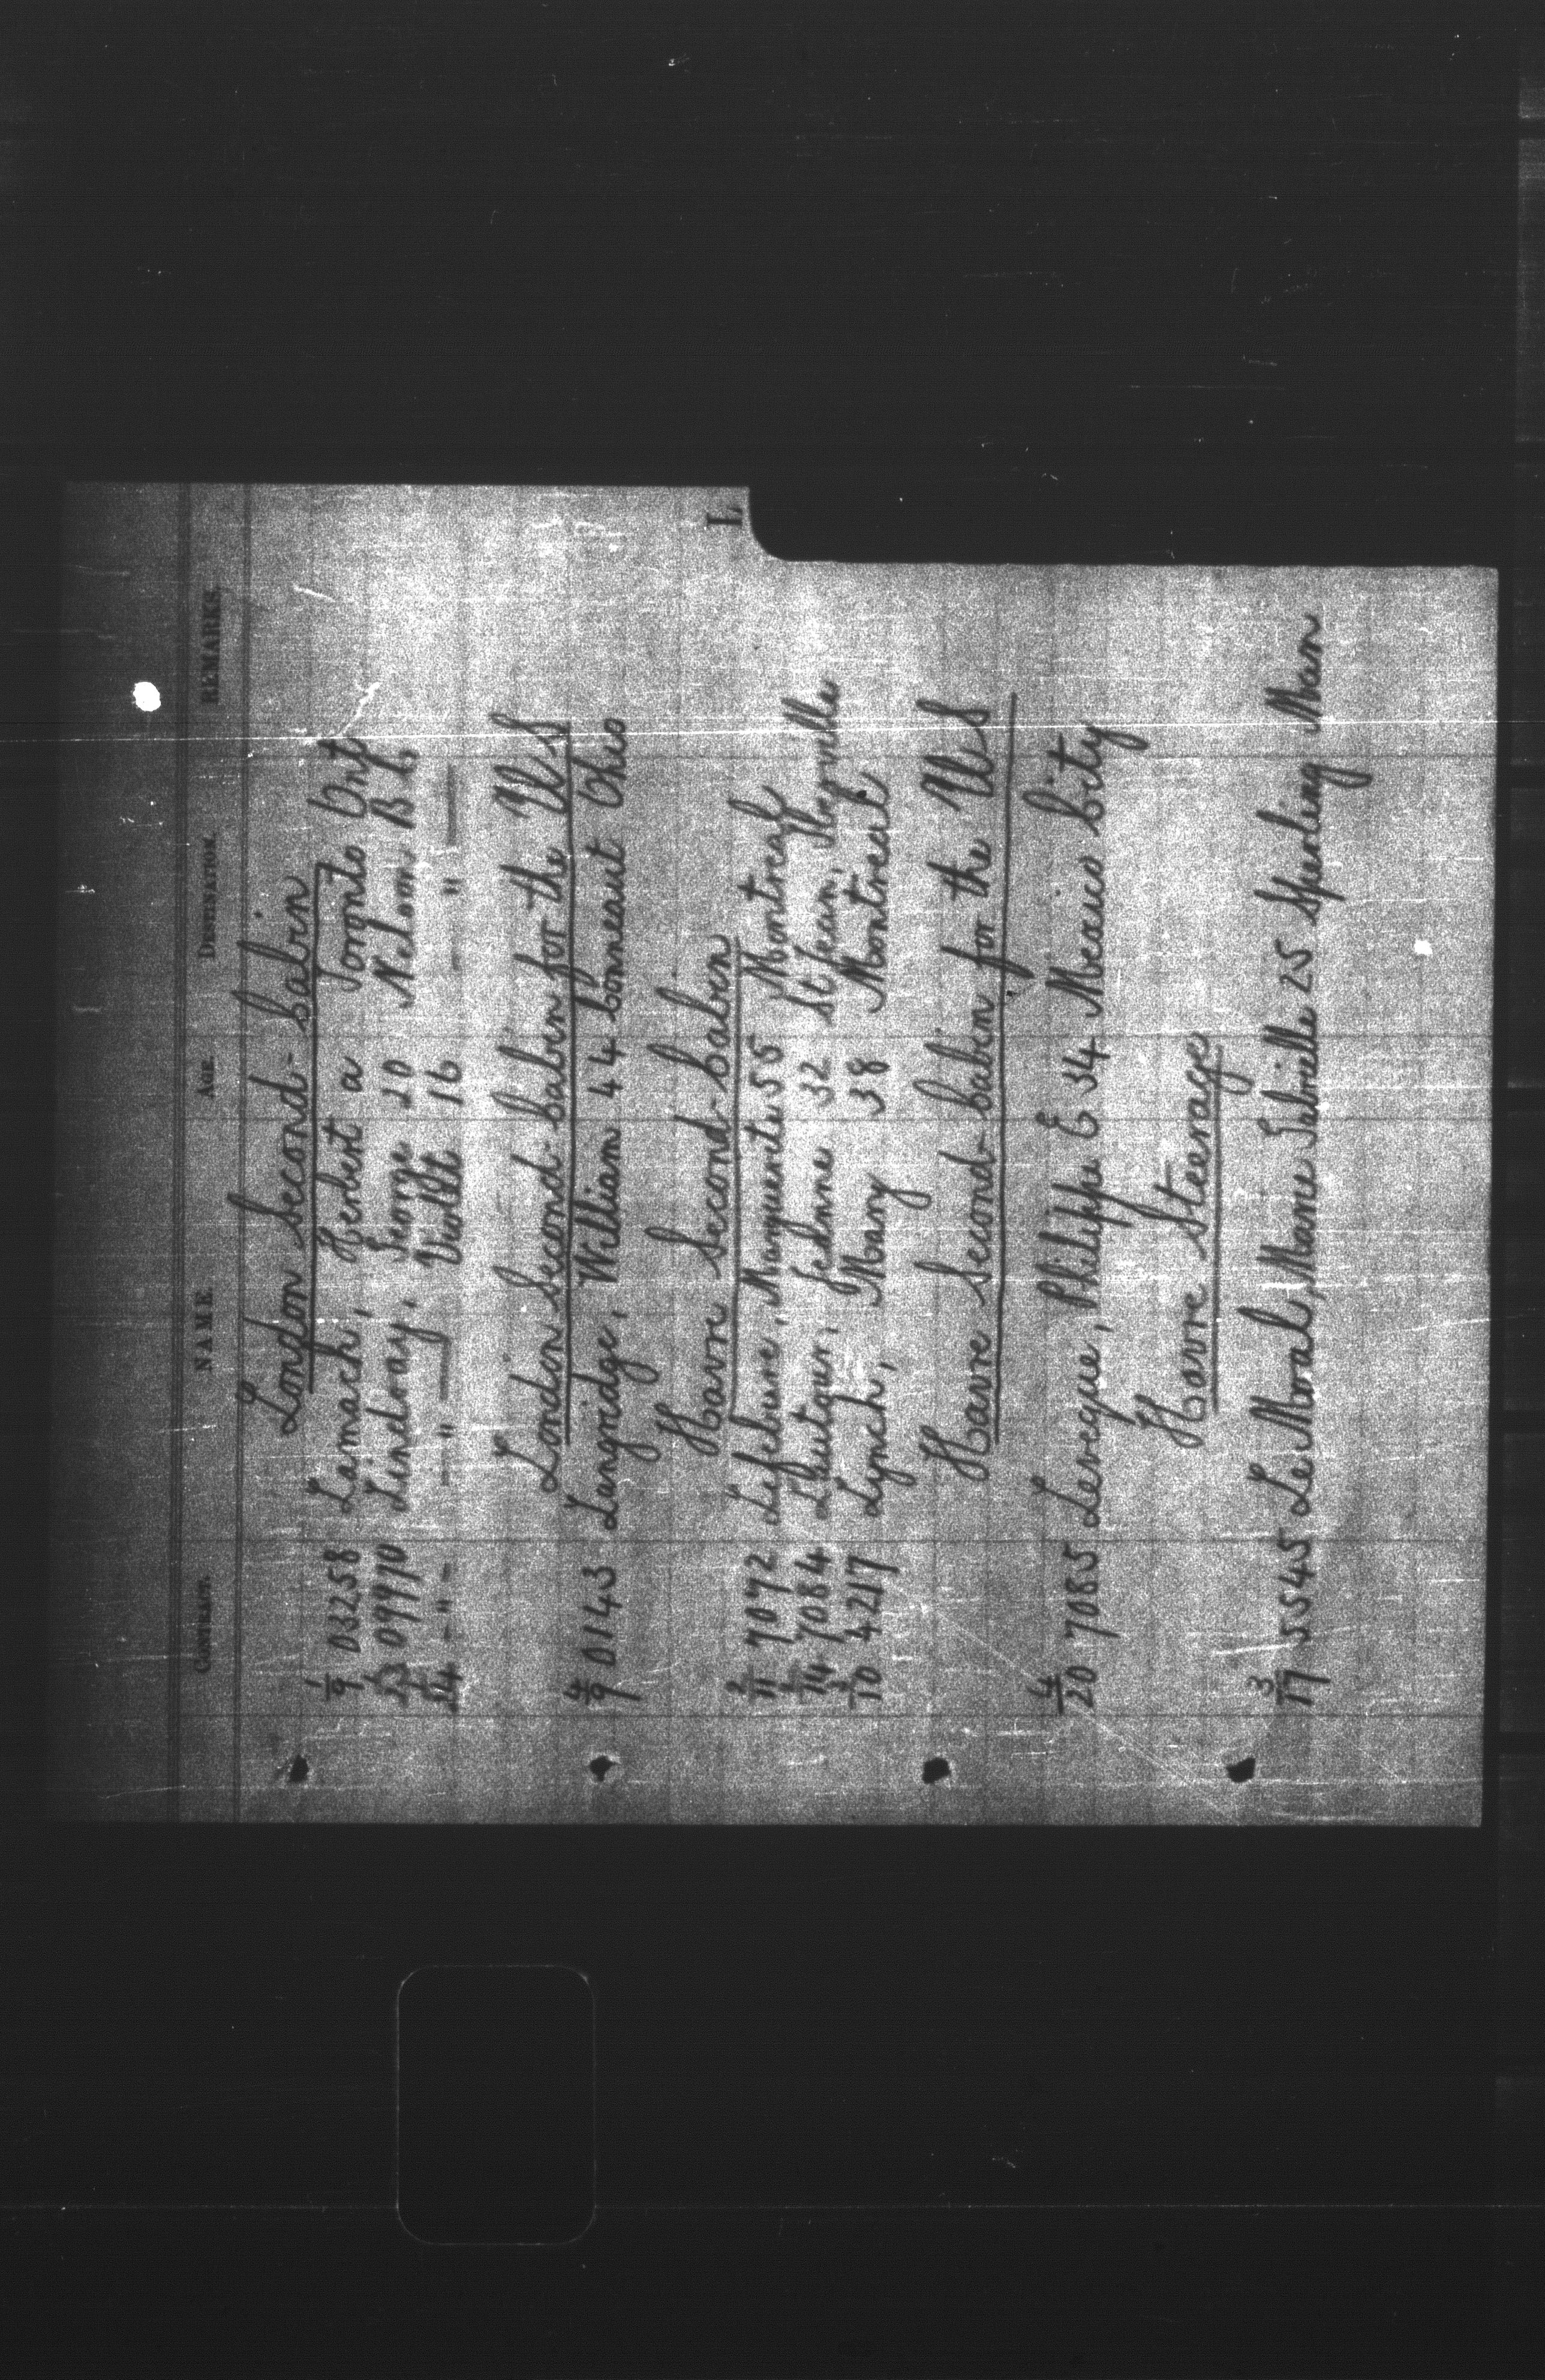 CONTRACT. NAME AGE DESTINATION. REMARKS.
L
London Second-Cabin
1/9 03258 Lamach, Herbert a Toronto Ont
1/23 09970 Lindsay, George 20 Nelson B.C.
1/24 - " - — " — Violet 16 — " —
London Second-Cabin for the US
4/9 0143 Langridge, William 44 Conneaut Ohio
Havre Second-Cabin
2/11 7072 Lefebure, Marguerite 55 Montreal
2/14 7084 Jehanne 32 St Jean,
2/10 4217 Lynch, Mary 38 Montreal
Havre Second-Cabin for the US
4/20 7085 Levesque, Philippe E 34 Mexico City
Havre Steerage
3/17 5545 Le Moal, Marie Gabrielle 25 Sperling Man